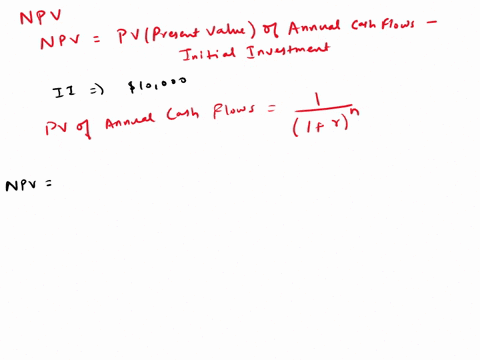 NPV
NPV = PV (Present Value) of Annual Cash Flows -
Initial Investment
II => $10,000
PV of Annual Cash Flows = 1 / (1 + r)^n
NPV =